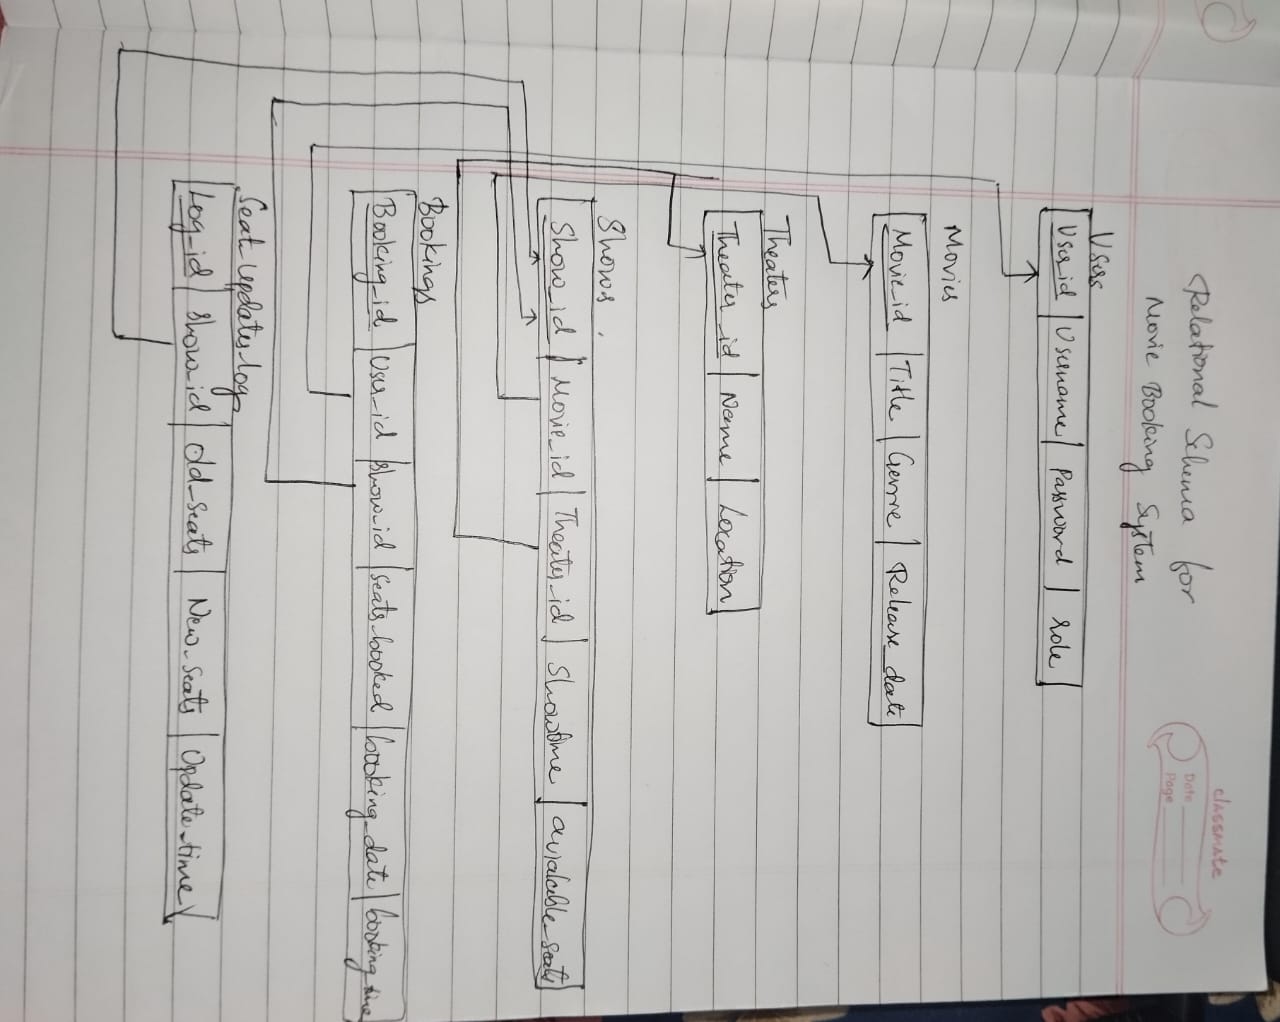 classmate
Date
Page
Relational Schema for
Movie Booking System
Users
User_id | Username | Password | role
Movies
Movie_id | Title | Genre | Release_date
Theaters
Theater_id | Name | Location
Shows.
Show_id | Movie_id | Theater_id | Showtime | available_seats
Bookings
Booking_id | User_id | show_id | seats_booked | booking_date | booking_time
Seat_updates_log
Log_id | show_id | old_seats | New_seats | Update_time